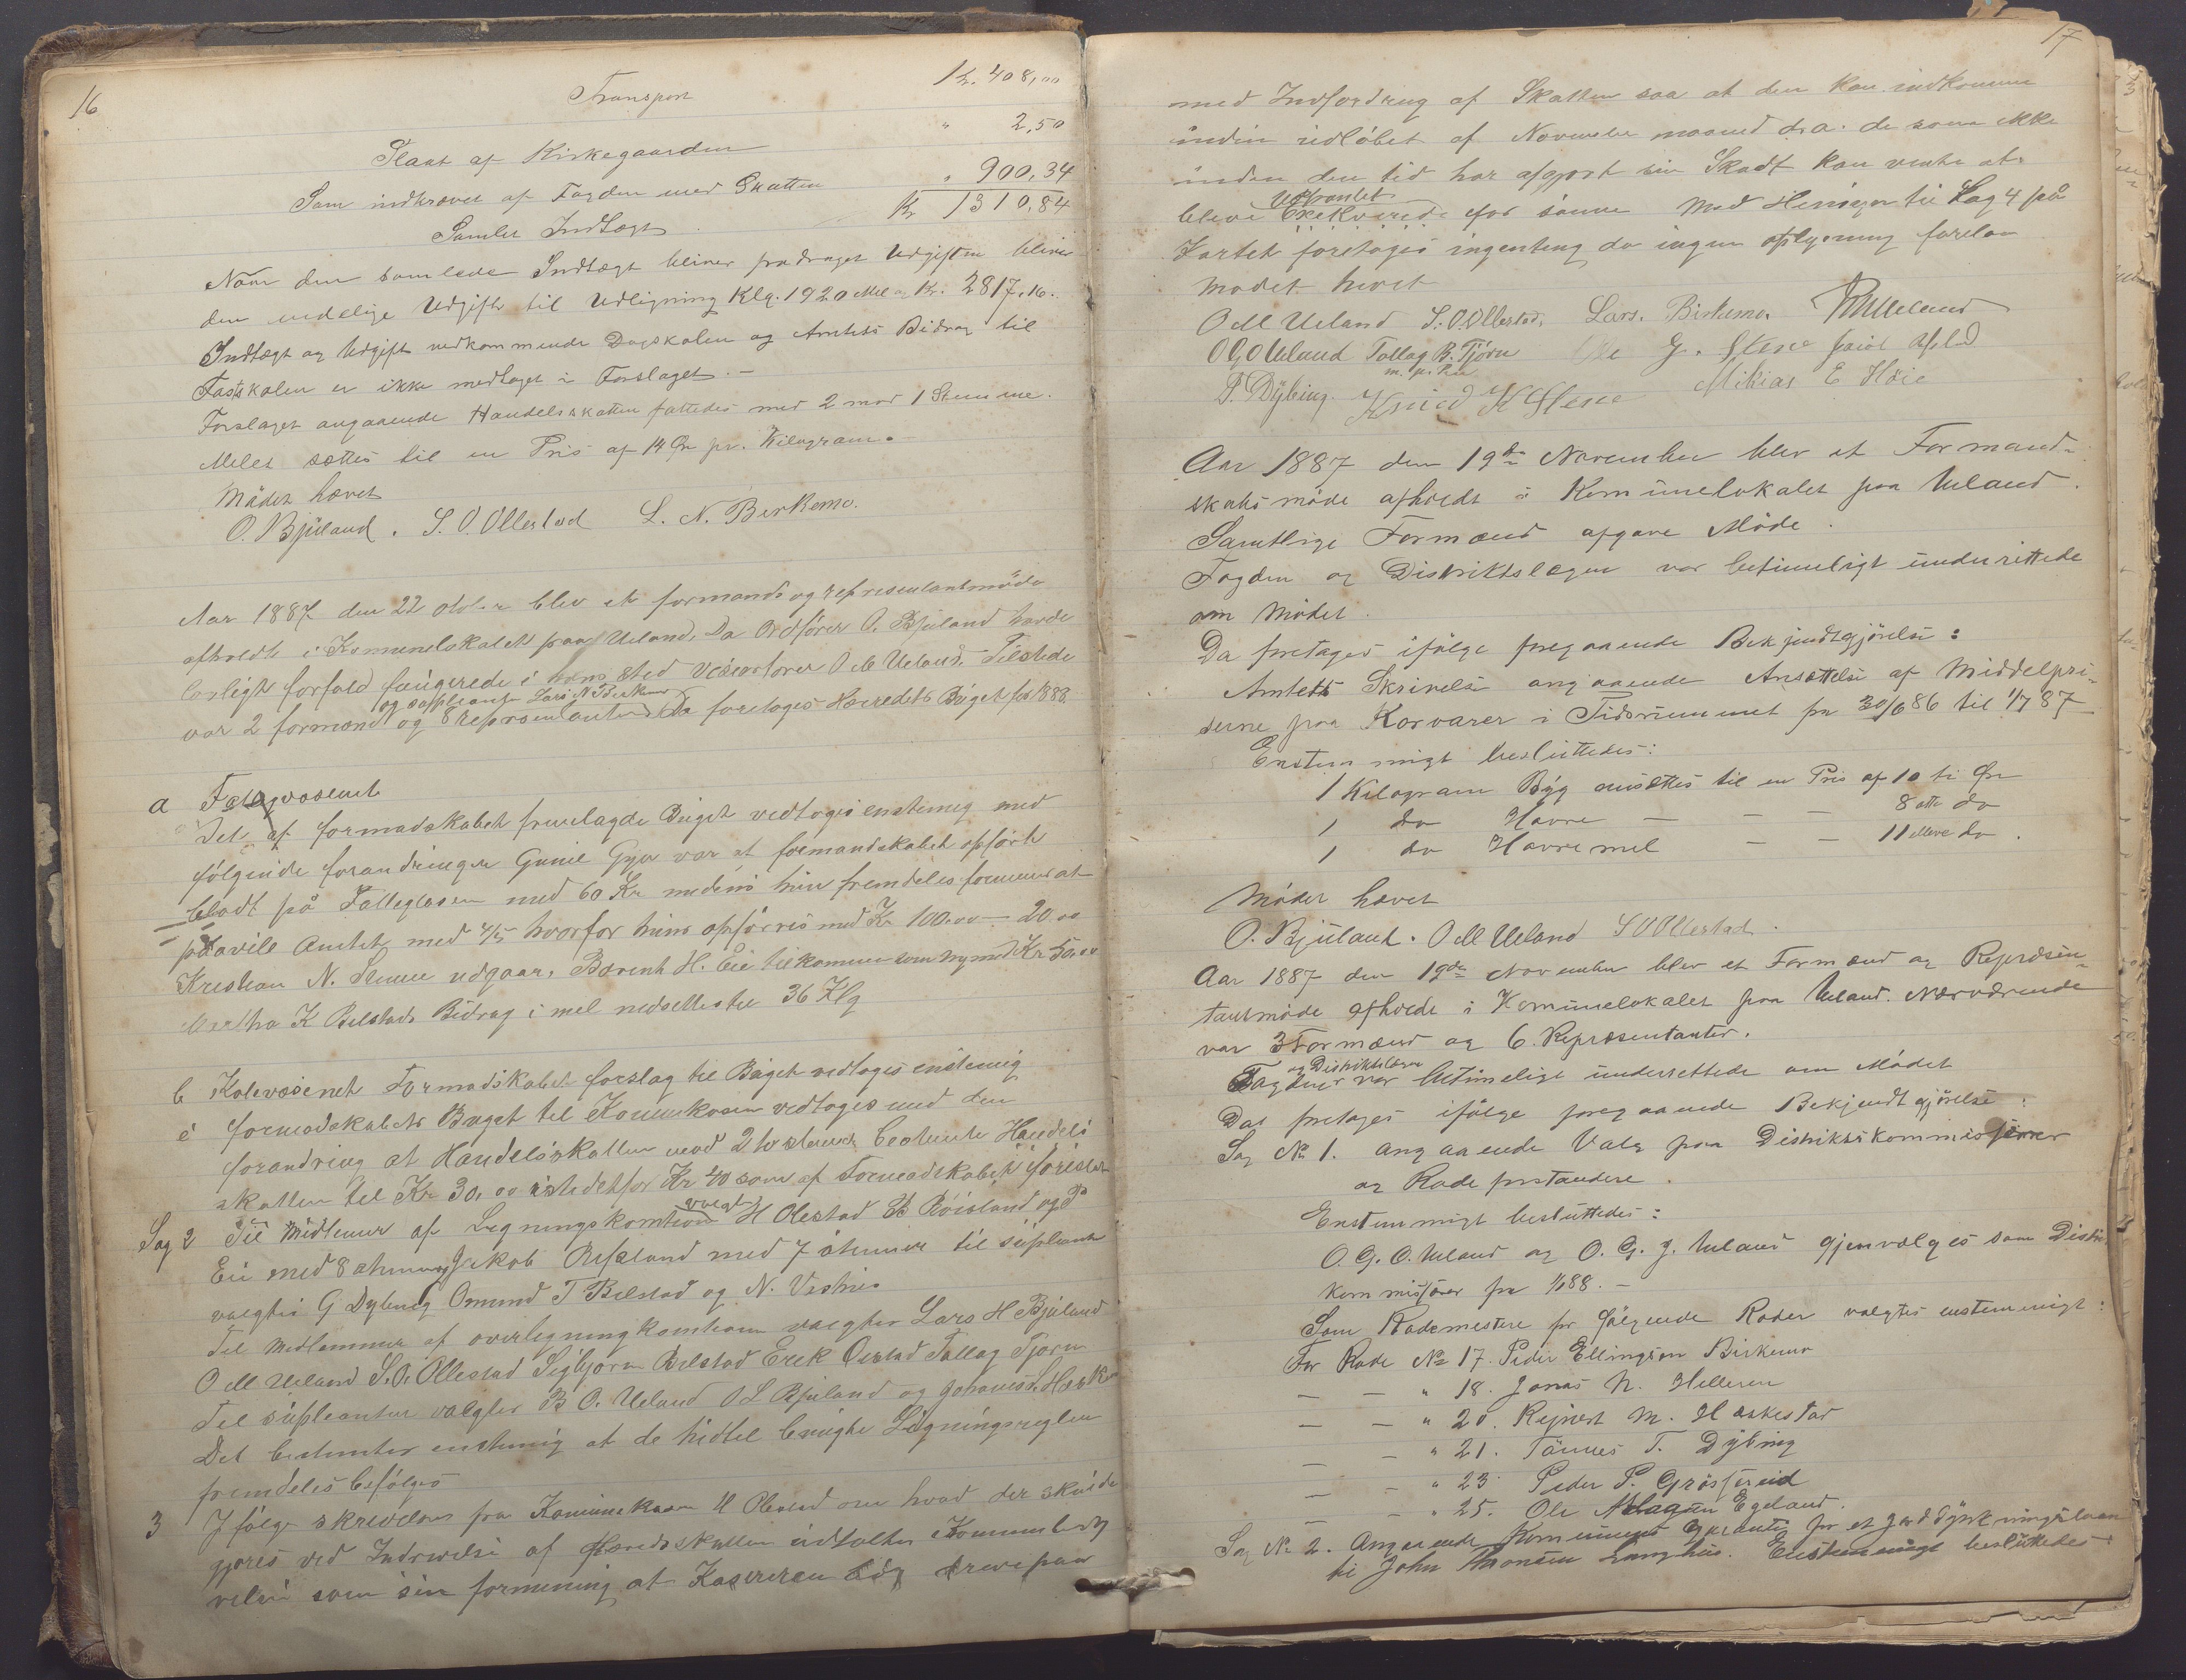 16
Transport Kr. 408,00
Slaat af Kirkegaarden " 2,50
Som indkræves af Fogden med Skatten " 900,34
Samlet Indtægt Kr 1310,84
Naar den samlede Indtægt bliver fradraget Udgiften bliver
den endelige Udgift til Udligning Klg. 1920 Mel og Kr. 2817,16.
Indtægt og Udgift vedkommende Dagskolen og Amtets Bidrag til
Fastskolen er ikke medtaget i Forslaget.—
Forslaget angaaende Handelsskatten fattedes med 2 mod 1 Stemme.
Melet sættes til en Pris af 14 Øre pr. Kilogram.—
Mødet hævet
O. Bjuland. S. O. Ollestad L. N. Berkemo.
Aar 1887 den 22 otober blev et formands og representantmøde
afholdt i Komunelokalet paa Ueland. Da Ordfører O. Bjuland havde
lovligt forfald fungerede i hans sted viseordfører O M Ueland. Tilstede
og suppleant Lars N Birkemo
var 2 formænd og 8 representanter Da foretoges Herredets Buget for 1888.
a Fattigvæsenet
Det af formadskabet fremlagde Buget vedtoges enstemig med
følgende forandringer Gunil Gya var af formandskabet opført
blodt på Fattigkasen med 60 Kr medens hun fremdeles formenes at
påhvile Amtet med 4/5 hvorfor hun opføres med Kr 100.00 — 20.00
Kristian N. Stene udgaar, Berent H. Eie tilkommer som ny med Kr 50.00
Martha K Bilstads Bidrag i mel nedsettes til 36 Klg
b Kolevæsenet Formadskabet forslag til Buget vedtoges enstemig
c formadskabets Buget til Komunekasen vedtoges med den
forandring at Handelsskatten med 2 to stemer bestemte Handels
skatten til Kr 30,00 istedetfor Kr 40 som af Formadskabet foreslaet
valgtes
Sag 2 Til Medlemer af Ligningskomtion H Olestad B Röisland og P
Eie med 8 stemer Jakob Refsland med 7 stemer til supliant
valgtes G Dybing Omund T Bilstad og N. Vestrus
Til Medlemmer af overligningkomtion valgtes Lars H Bjuland
O M Ueland S. O. Ollestad Sigbjørn Bilstad Erek Oestad Tallag Tjørn
Til supleanter valgtes B O. Ueland O L Bjuland og Johanes L Hæsk
Det bestemtes enstemig at de hidtil brugte Ligningsregler
fremdeles befølges
3 Ifølge skrivelse fra Komunekasen H Olestad om hvad der skulde
gjøres ved Indrivelse af Heredsskatten udtalte Kommunebesty
relsen som sin formening at Kasereren bør drive paa
17
med Indfordring af Skatten saa at den kan indkomme
inden udløbet af November maaned d. a. de som ikke
inden den tid har afgjort sin Skadt kan vente at
Udpantet
blive Exekverede for samme Med Hensyn til Sag 4 på
Kartet foretoges ingenting da ingen oplysning forelaa
Mødet hævet
O M Ueland S. O. Ollestad. Lars. Birkemo.
O G O Ueland Tallag B. Tjörn Ole G. Stene
m. p. Pen
P. Dybing. Knud K Stene Mikias E Høie
Aar 1887 den 19de November blev et Formand-
skabsmöde afholdt i Komunelokalet paa Ueland.
Samtlige Formænd afgave Möde.
Fogden og Distriktslægen var betimeligt underrettede
om Mödet.
Da foretoges ifølge foregaaende Bekjendtgjörelse:
Amtets Skrivelse angaaende Ansættelse af Middelpri-
serne paa Kornvarer i Tidsrummet fra 30/6 86 til 1/7 87
Enstemmigt besluttedes:
1 Kilogram Byg ansættes til en Pris af 10 ti Øre
1 do Havre — — — 8 otte do
1 do Havremel — — 11 elleve do.
Mödet hævet
O. Bjuland. O M Ueland S O Ollestad.
Aar 1887 den 19de November blev et Formænd og Repræsen-
tantmöde afholdt i Komunelokalet paa Ueland. Nærværende
var 3 Formænd og 6. Repræsentanter.
og Distriktslægen
Fogden var betimelige underrettede om Mödet
Da foretoges ifølge foregaaende Bekjendtgjörelse:
Sag No 1. angaaende Valg paa Distriktskommissjonær
og Rodeforstandere.
Enstemmigt besluttedes:
O. G. O. Ueland og O. G. J. Ueland gjenvælges som Distri
kommissjonær fra 1/1 88.—
Som Rodemestere for følgende Roder valgtes enstemmigt:
For Rode No 17. Peder Ellingsen Birkemo
— — " 18. Jonas N. Helleren
— — " 20. Rejnert M. Hæskestad
— — " 21. Tönnes T. Dybing
— — " 23. Peder P. Gröstereid
— — " 25. Ole Magnus Egeland.
Sag No 2. Angaaende Komunens Garanti for et Jorddyrkningslaan
til John Monsen Langhus. Enstemmigt besluttedes